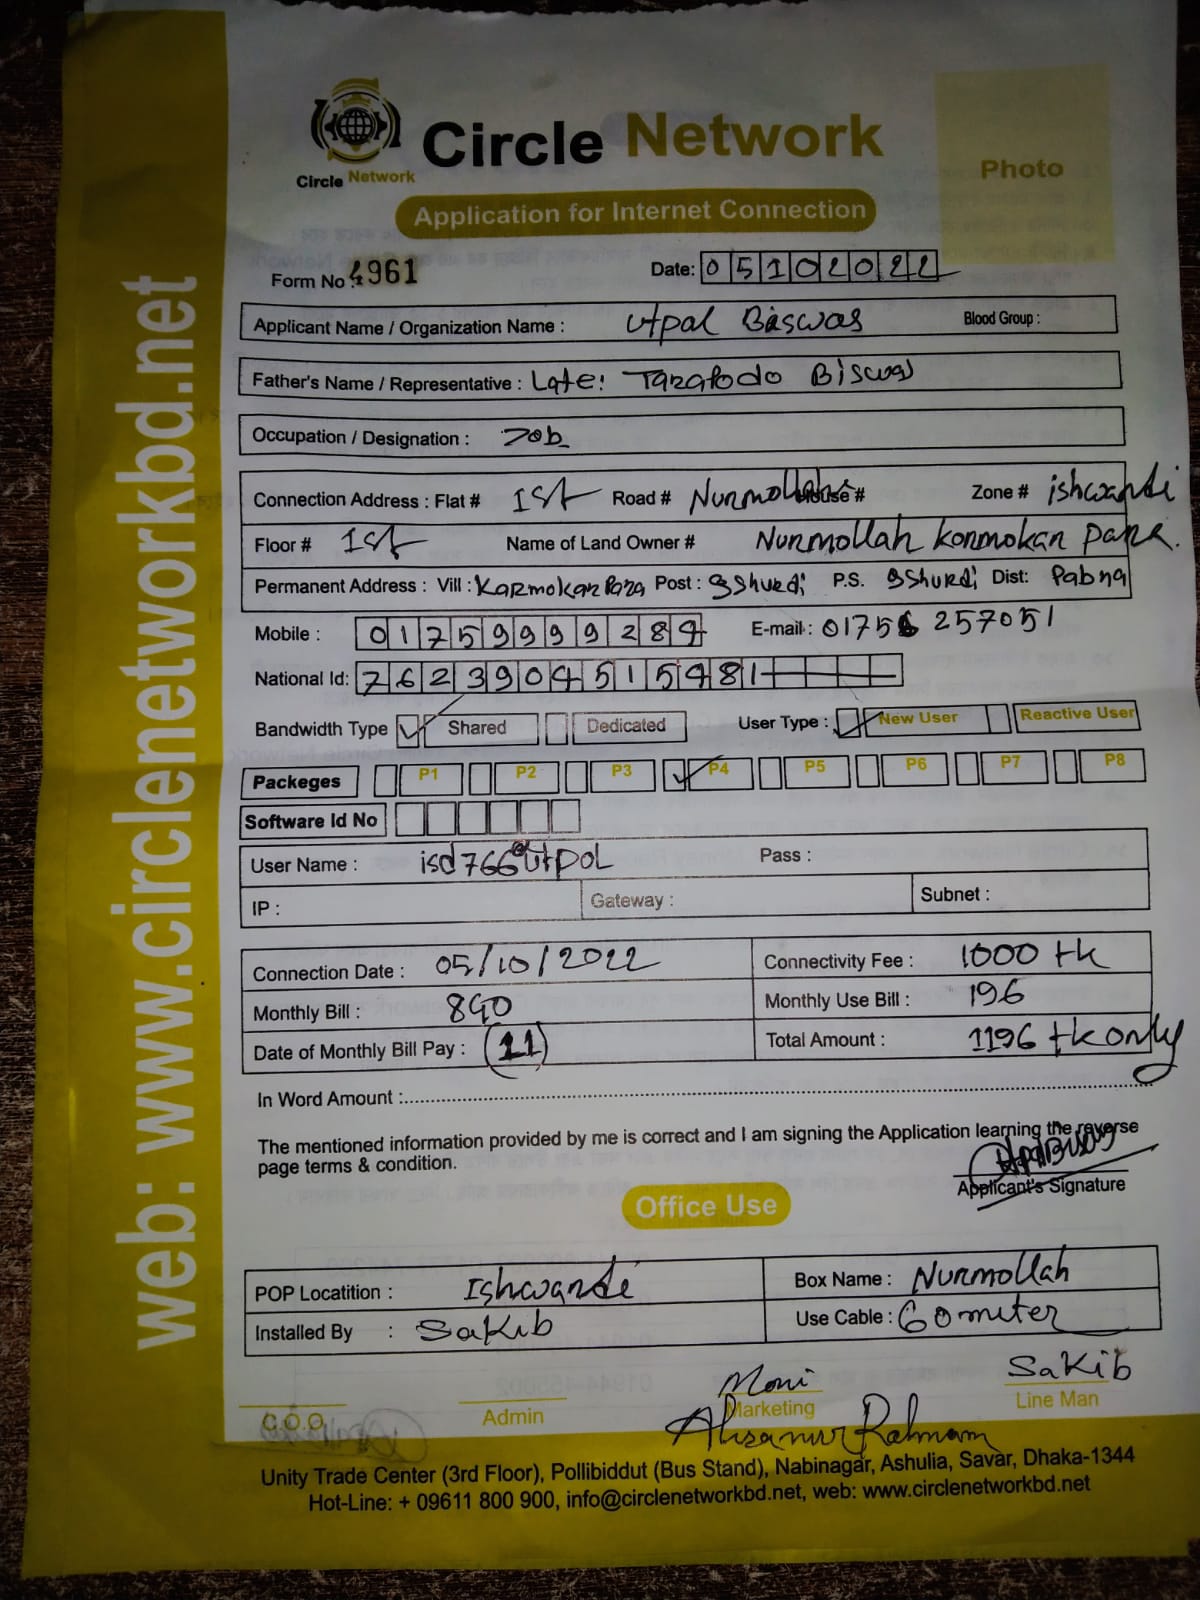 Circle Network
Circle Network
Photo
Application for Internet Connection
Form No : 4961
Date: 05102022
Applicant Name / Organization Name : Utpal Biswas Blood Group :
Father's Name / Representative : Late: Tarapodo Biswas
Occupation / Designation : Job
Connection Address : Flat # 1st Road # Nurmollah House # Zone # ishwardi
Floor # 1st Name of Land Owner # Nurmollah Kormokar para.
Permanent Address : Vill : Karmokar Para Post : Ishurdi P.S. Ishurdi Dist: Pabna
Mobile : 01759999284 E-mail : 01756 257051
National Id: 7623904515481
Bandwidth Type Shared Dedicated User Type : New User Reactive User
Packeges P1 P2 P3 P4 P5 P6 P7 P8
Software Id No
User Name : isd766@utpol Pass :
IP : Gateway : Subnet :
Connection Date : 05/10/2022 Connectivity Fee : 1000 tk
Monthly Bill : 840 Monthly Use Bill : 196
Date of Monthly Bill Pay : (11) Total Amount : 1196 tk only
In Word Amount :
The mentioned information provided by me is correct and I am signing the Application learning the reverse
page terms & condition.
Utpal Biswas
Applicant's Signature
Office Use
POP Locatition : Ishwardi Box Name : Nurmollah
Installed By : Sakib Use Cable : 60 miter
Moni Sakib
C.O.O. Admin Marketing Line Man
Ahsanur Rahman
Unity Trade Center (3rd Floor), Pollibiddut (Bus Stand), Nabinagar, Ashulia, Savar, Dhaka-1344
Hot-Line: + 09611 800 900, info@circlenetworkbd.net, web: www.circlenetworkbd.net
web: www.circlenetworkbd.net